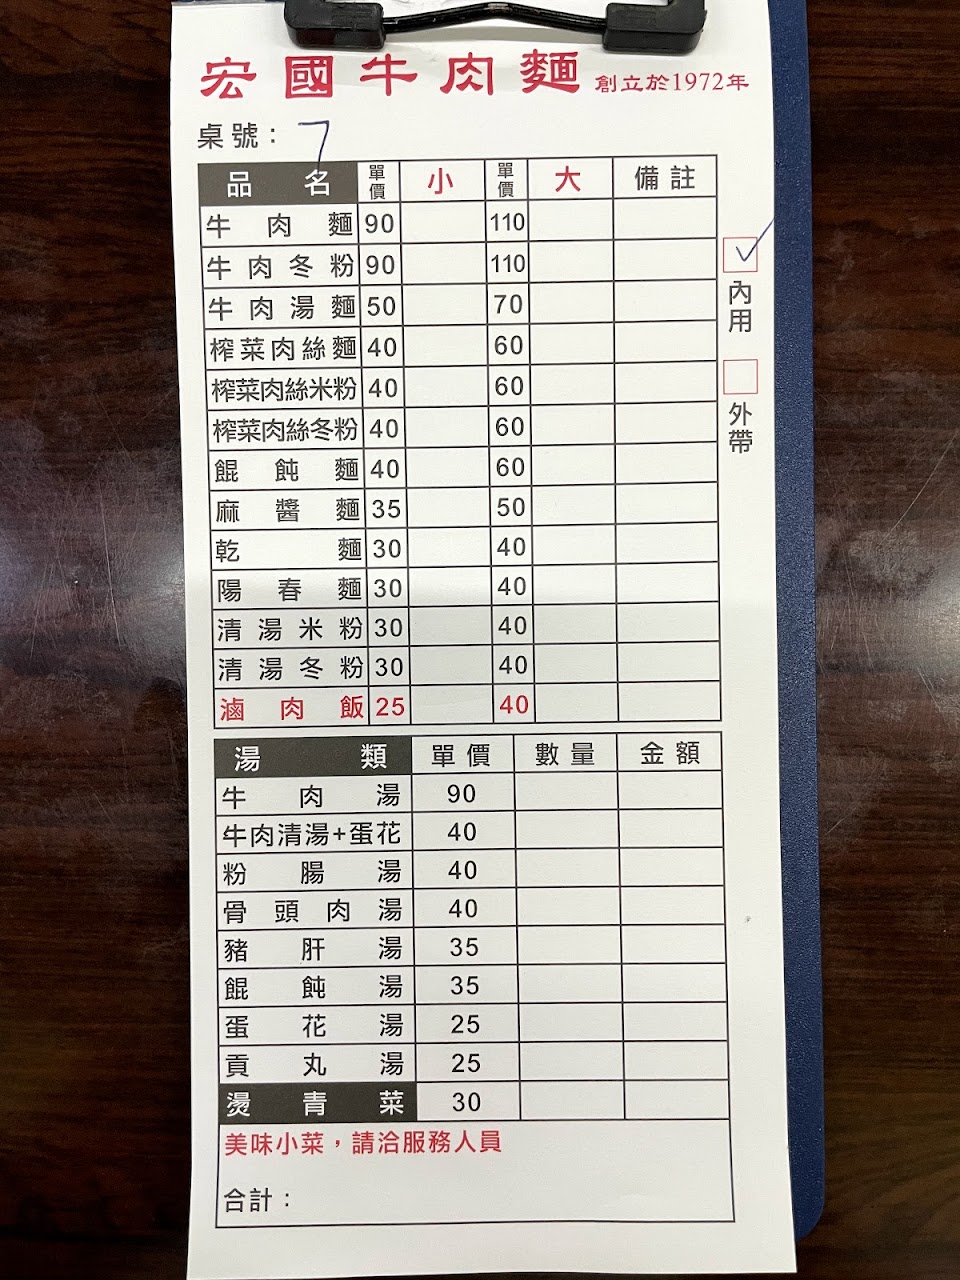 宏國牛肉麵 創立於1972年
桌號： 7
品名 單價 小 單價 大 備註
牛肉麵 90 110
牛肉冬粉 90 110
牛肉湯麵 50 70
榨菜肉絲麵 40 60
榨菜肉絲米粉 40 60
榨菜肉絲冬粉 40 60
餛飩麵 40 60
麻醬麵 35 50
乾麵 30 40
陽春麵 30 40
清湯米粉 30 40
清湯冬粉 30 40
滷肉飯 25 40
內用
外帶
湯類 單價 數量 金額
牛肉湯 90
牛肉清湯+蛋花 40
粉腸湯 40
骨頭肉湯 40
豬肝湯 35
餛飩湯 35
蛋花湯 25
貢丸湯 25
燙青菜 30
美味小菜，請洽服務人員
合計：